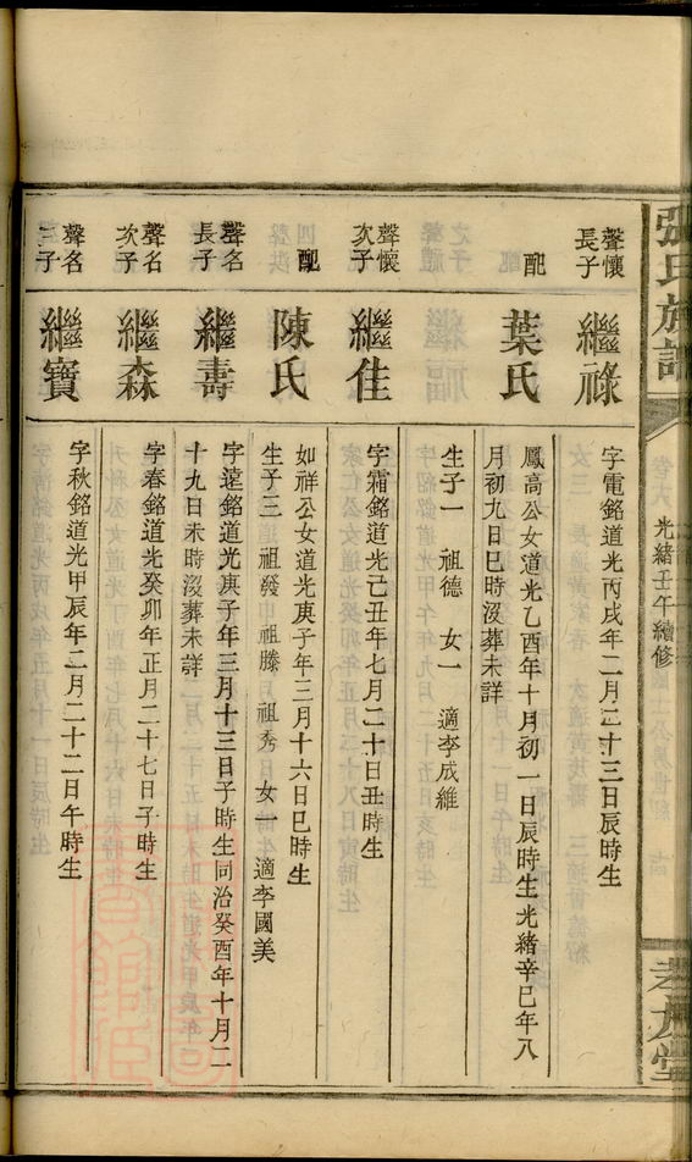 張氏族譜
光緒壬午續修
孝友堂
聲懷長子
繼祿
字電銘道光丙戌年二月二十三日辰時生
配
葉氏
鳳高公女道光乙酉年十月初一日辰時生光緒辛巳年八
月初九日巳時沒葬未詳
生子一　祖德　女一　適李成維
聲懷次子
繼佳
字霜銘道光己丑年七月二十日丑時生
配
陳氏
如祥公女道光庚子年三月十六日巳時生
生子三　祖發　祖滕　祖秀　女一　適李國美
聲名長子
繼壽
字遠銘道光庚子年三月十三日子時生同治癸酉年十月二
十九日未時沒葬未詳
聲名次子
繼森
字春銘道光癸卯年正月二十七日子時生
聲名三子
繼寶
字秋銘道光甲辰年二月二十二日午時生